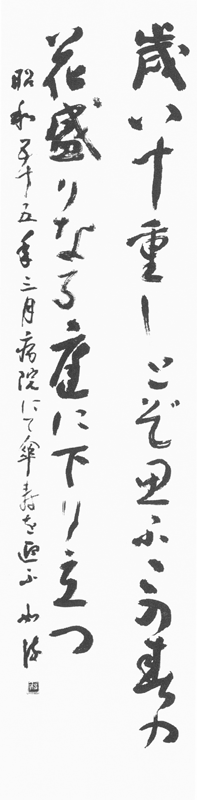 歳八十重しとぞ思ふこの春の
花盛りなる庭に下り立つ
昭和五十五年三月病院にて傘寿を迎ふ